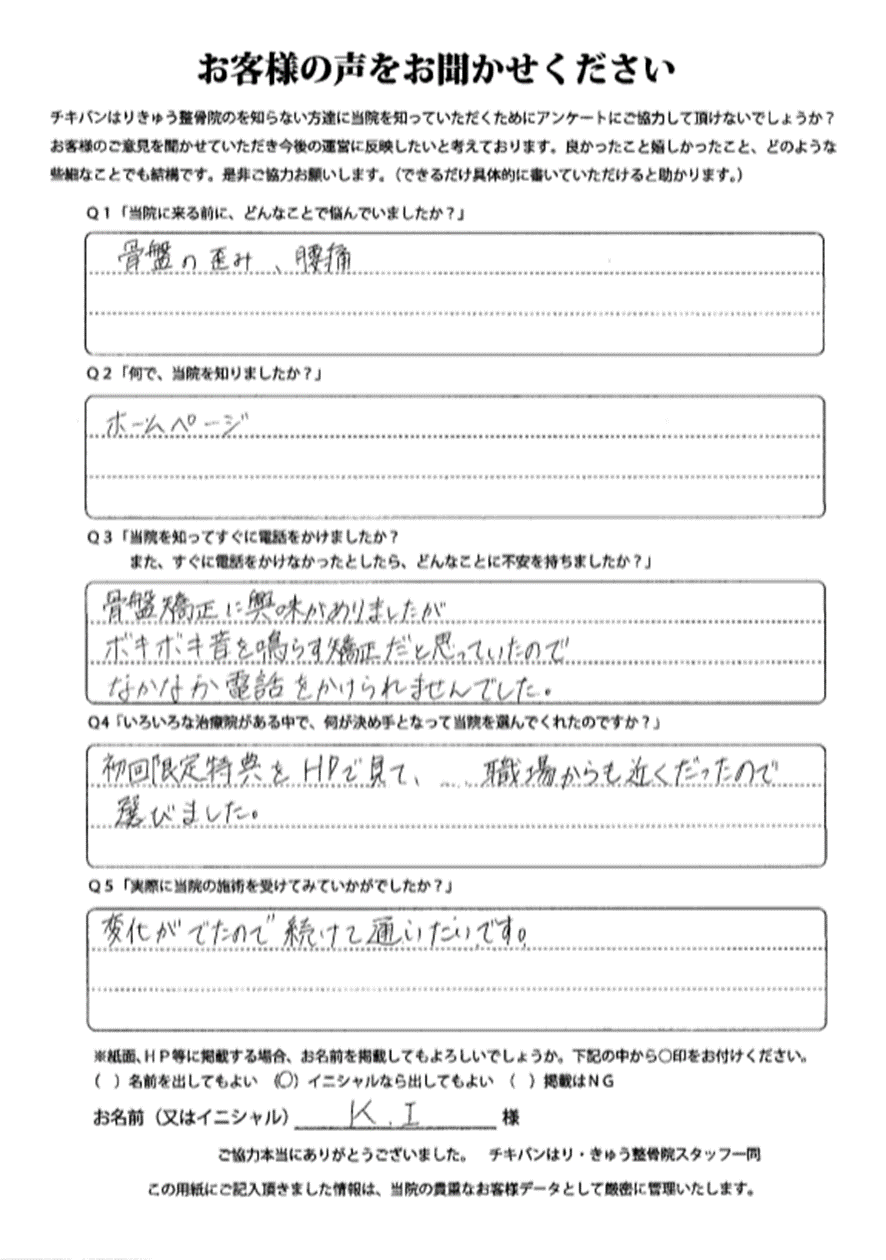 お客様の声をお聞かせください
チキバンはりきゅう整骨院のを知らない方達に当院を知っていただくためにアンケートにご協力して頂けないでしょうか？
お客様のご意見を聞かせていただき今後の運営に反映したいと考えております。良かったこと嬉しかったこと、どのような
些細なことでも結構です。是非ご協力お願いします。（できるだけ具体的に書いていただけると助かります。）
Ｑ１「当院に来る前に、どんなことで悩んでいましたか？」
骨盤の歪み、腰痛
Ｑ２「何で、当院を知りましたか？」
ホームページ
Ｑ３「当院を知ってすぐに電話をかけましたか？
また、すぐに電話をかけなかったとしたら、どんなことに不安を持ちましたか？」
骨盤矯正に興味がありましたが
ボキボキ音を鳴らす矯正だと思っていたので
なかなか電話をかけられませんでした。
Q4「いろいろな治療院がある中で、何が決め手となって当院を選んでくれたのですか？」
初回限定特典をHPで見て、職場からも近くだったので
選びました。
Ｑ５「実際に当院の施術を受けてみていかがでしたか？」
変化がでたので続けて通いたいです。
※紙面、ＨＰ等に掲載する場合、お名前を掲載してもよろしいでしょうか。下記の中から〇印をお付けください。
（　）名前を出してもよい （○）イニシャルなら出してもよい （　）掲載はＮＧ
お名前（又はイニシャル） K.I 様
ご協力本当にありがとうございました。 チキバンはり・きゅう整骨院スタッフ一同
この用紙にご記入頂きました情報は、当院の貴重なお客様データとして厳密に管理いたします。